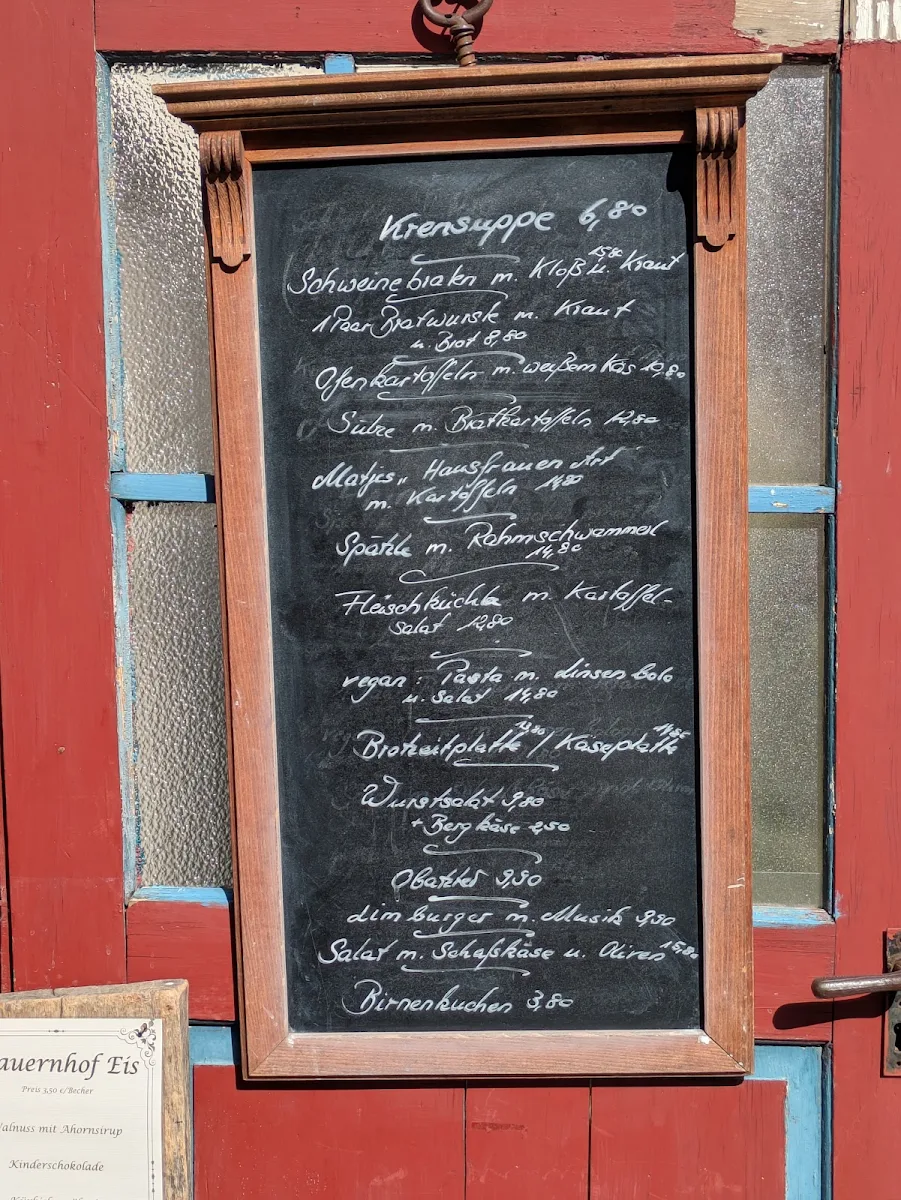 Krensuppe 6,80
Schweinebraten m. Kloß u. Kraut 15,80
1 Paar Bratwürste m. Kraut
u. Brot 8,80
Ofenkartoffeln m. weißem Käs 10,80
Sülze m. Bratkartoffeln 12,80
Matjes „Hausfrauen Art
m. Kartoffeln 14,80
Spätzle m. Rahmschwammerl
14,80
Fleischküchla m. Kartoffel-
Salat 12,80
vegan: Pasta m. Linsen bolo
u. Salat 14,80
Brotzeitplatte / Käseplatte
Wurstsalat 9,80
+ Bergkäse 2,50
Obatzter 9,90
Limburger m. Musik 9,90
Salat m. Schafskäse u. Oliven 15,80
Birnenkuchen 3,80
auernhof Eis
Preis 3,50 €/Becher
alnuss mit Ahornsirup
Kinderschokolade